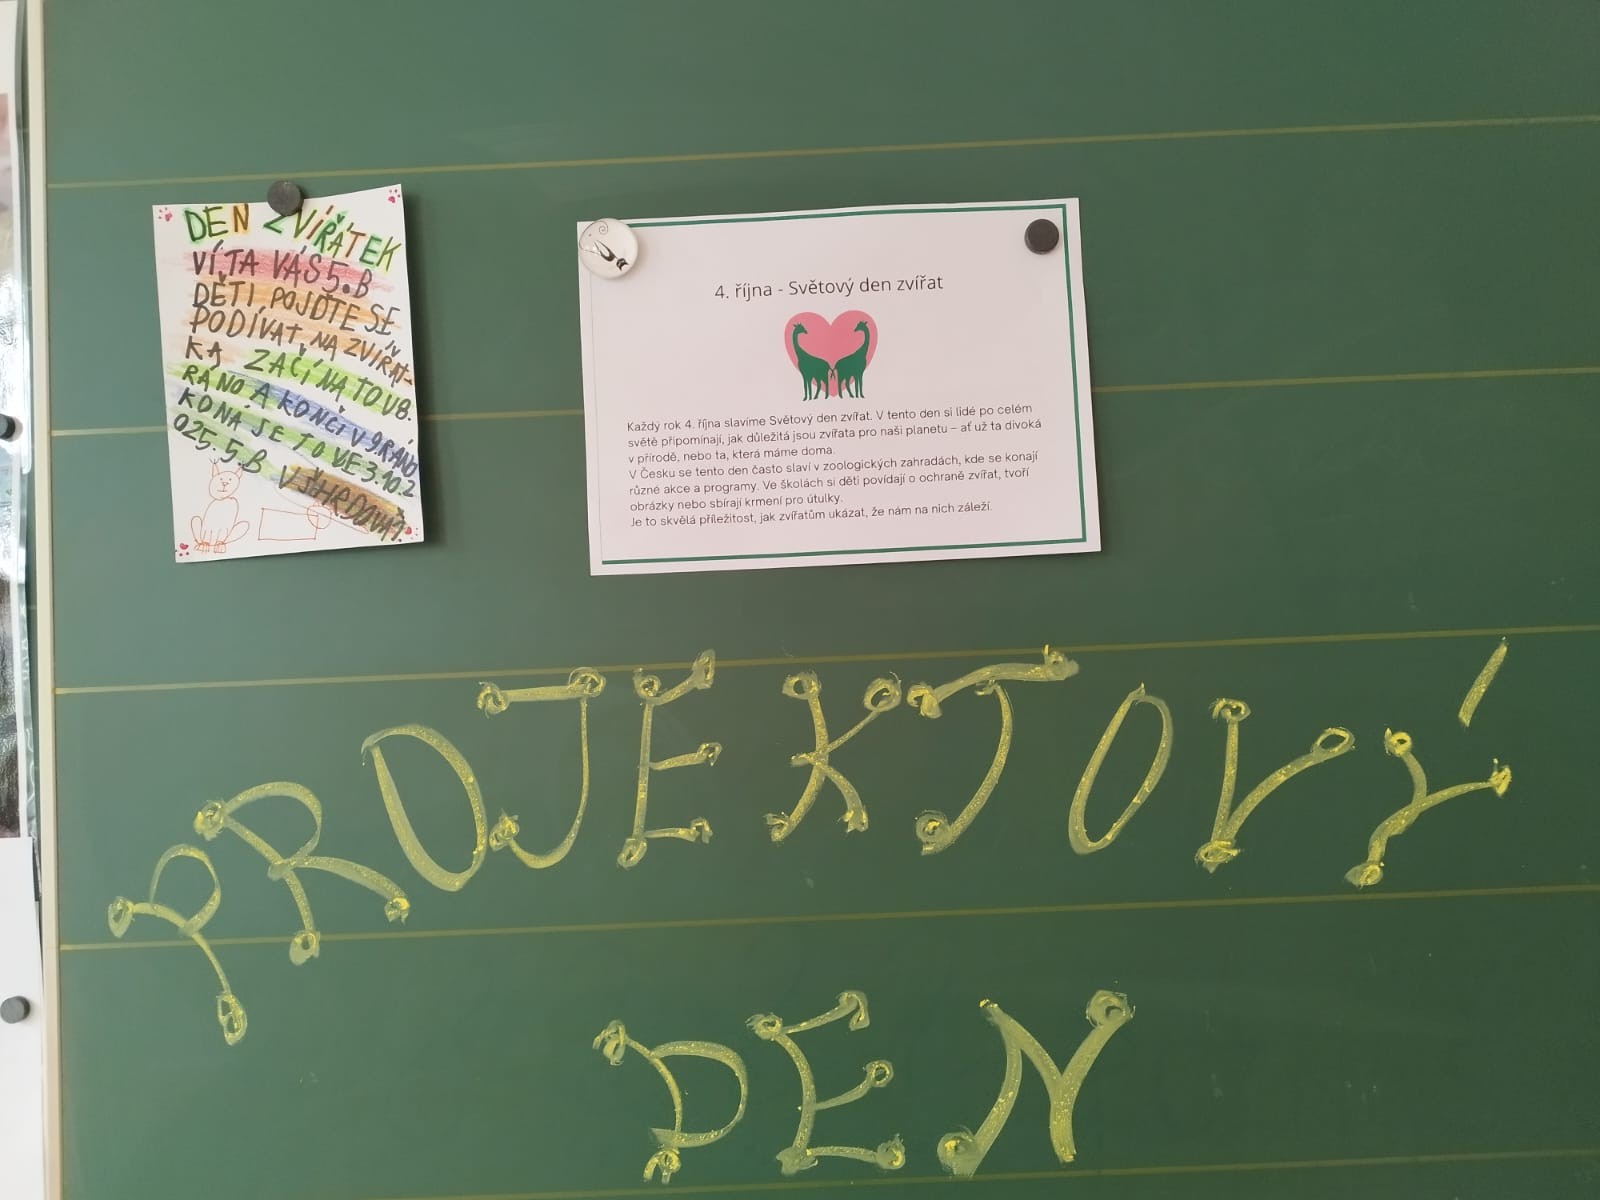 DEN ZVÍŘÁTEK
VÍTA VÁS 5.B
DĚTI POJĎTE SE
PODÍVAT NA ZVÍŘÁT-
KA ZAČÍNA TO V8.
RÁNO A KONČÍ V 9.RÁNO
KONÁ SE TO VE 3.10.2
025. 5.B V
4. října - Světový den zvířat
Každý rok 4. října slavíme Světový den zvířat. V tento den si lidé po celém
světě připomínají, jak důležitá jsou zvířata pro naši planetu – ať už ta divoká
v přírodě, nebo ta, která máme doma.
V Česku se tento den často slaví v zoologických zahradách, kde se konají
různé akce a programy. Ve školách si děti povídají o ochraně zvířat, tvoří
obrázky nebo sbírají krmení pro útulky.
Je to skvělá příležitost, jak zvířatům ukázat, že nám na nich záleží.
PROJEKTOVÝ
DEN